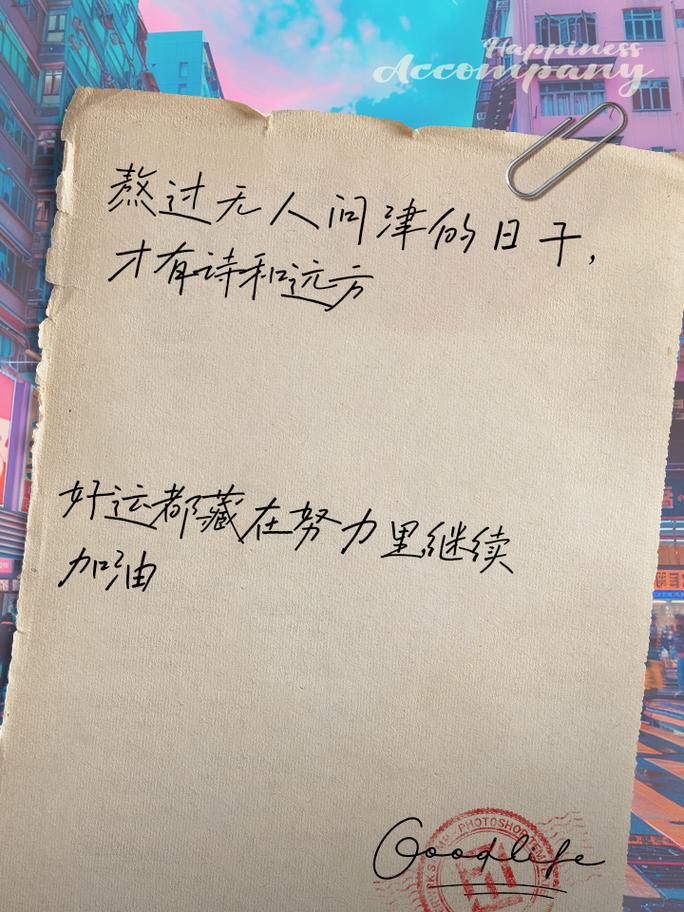 Happiness
Accompany
熬过无人问津的日子,
才有诗和远方
好运都藏在努力里继续
加油
PHOTOSHOP
Goodlife